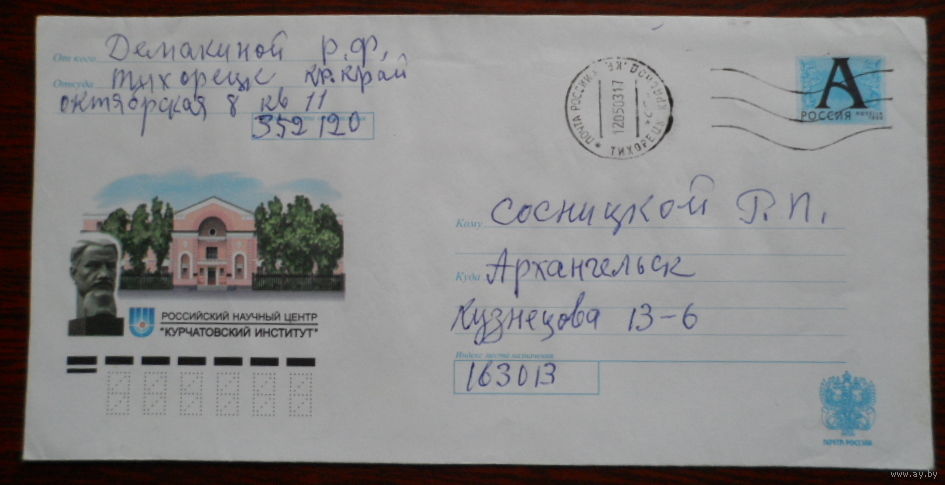 От кого Демакиной Р.Ф.
Откуда Тихорецк кр.край
октябрская 8 кв 11
352120
ПОЧТА РОССИИ
120503 17
ТИХОРЕЦК
А
РОССИЯ
Кому Сосницкой Р.П.
Куда Архангельск
Кузнецова 13-6
Индекс места назначения
163013
РОССИЙСКИЙ НАУЧНЫЙ ЦЕНТР
"КУРЧАТОВСКИЙ ИНСТИТУТ"
ПОЧТА РОССИИ
www.ay.by